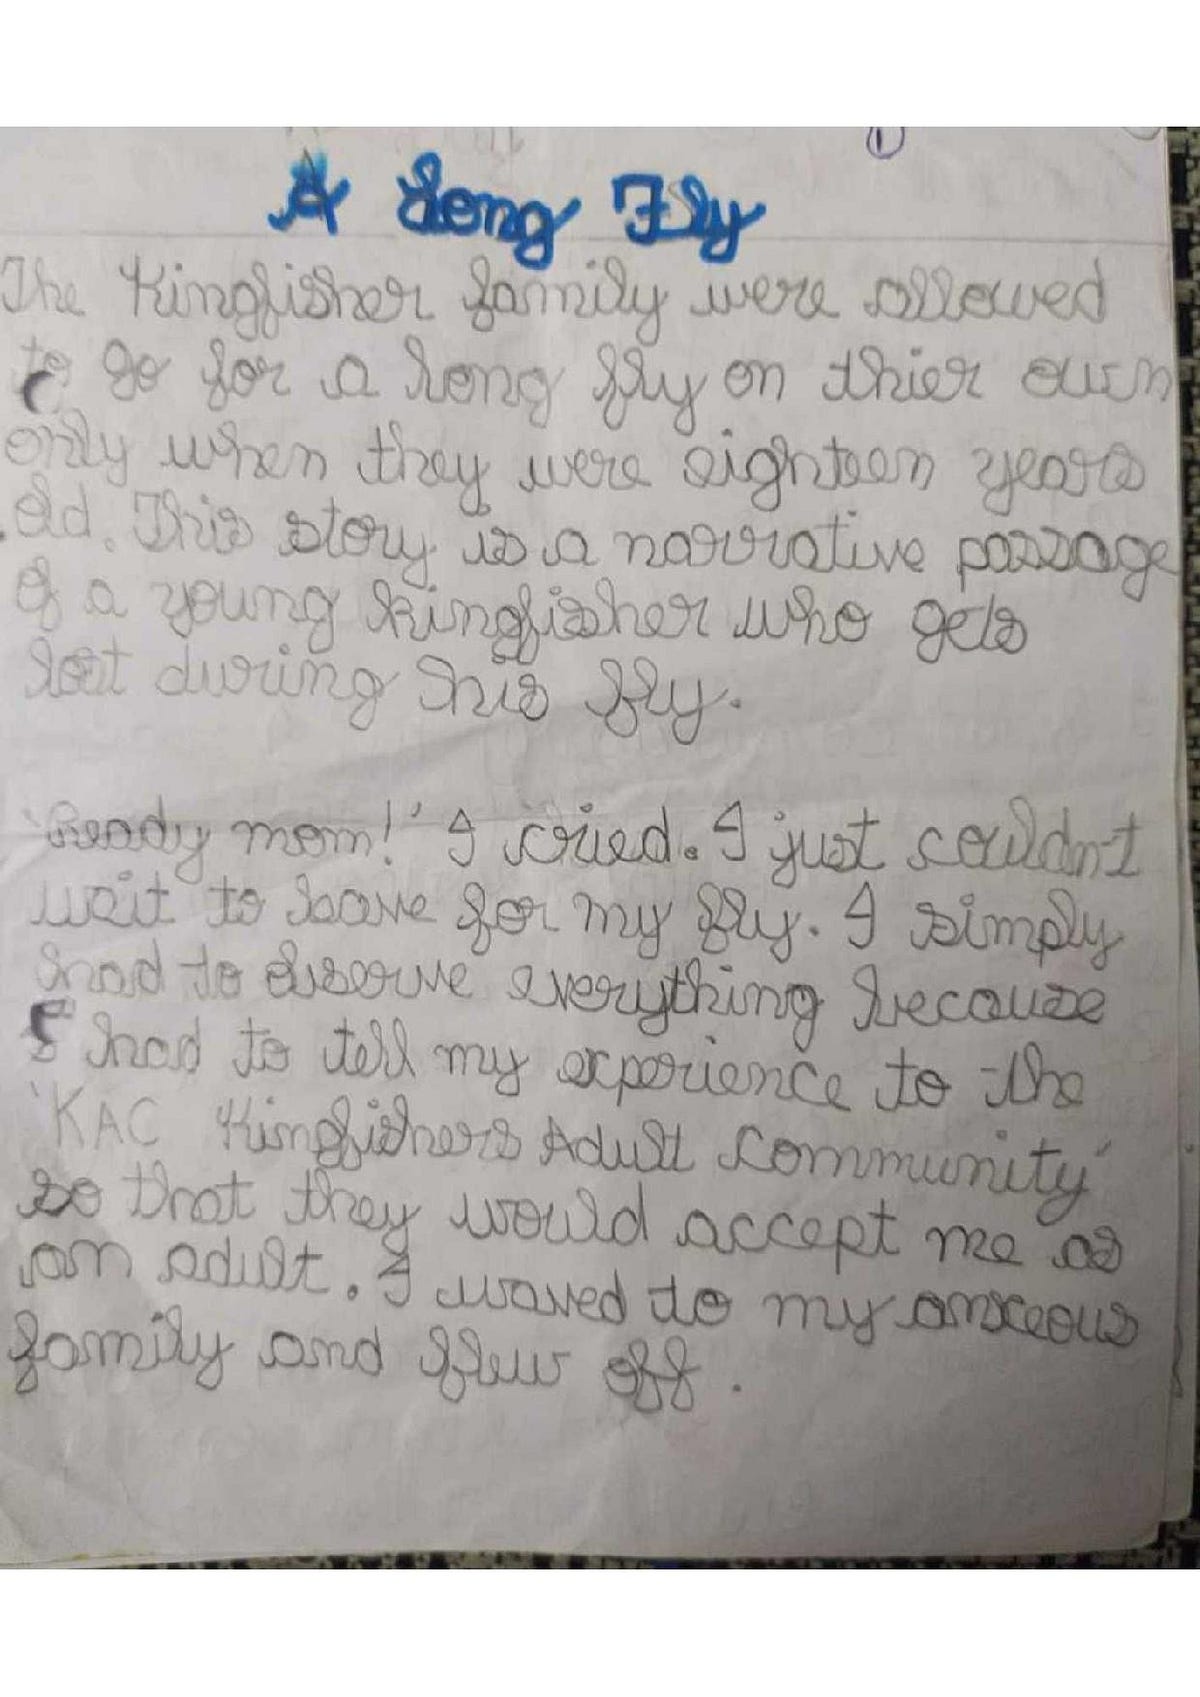 1
A Long Fly
The Kingfisher family were allowed
to go for a long fly on thier own
only when they were eighteen years
old. This story is a narrative passage
of a young kingfisher who gets
lost during his fly.
'Ready mom!' I cried. I just couldn't
wait to leave for my fly. I simply
had to observe everything because
I had to tell my experience to the
'KAC Kingfishers Adult Community'
so that they would accept me as
an adult. I waved to my anxeous
family and flew off.